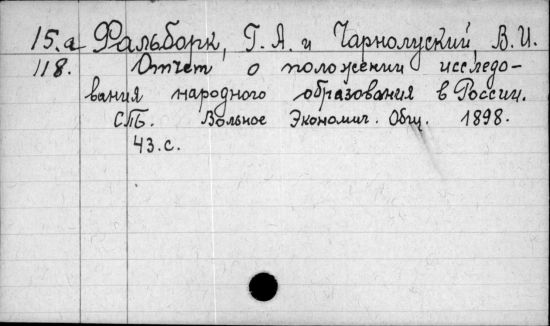 15.a Фальборк, Г. А. и Чарнолуский, В. И.
118. Отчет о положении исследо-
вания народного образования в России.
СПБ. Вольное Экономич. Общ. 1898.
43.с.